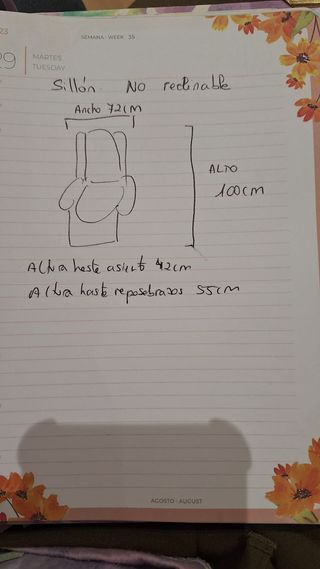 23
SEMANA · WEEK 35
29
MARTES
TUESDAY
Sillón NO reclinable
Ancho 72CM
ALTO
100CM
Altura hasta asiento 42cm
Altura hasta reposabrazos 55cm
AGOSTO · AUGUST